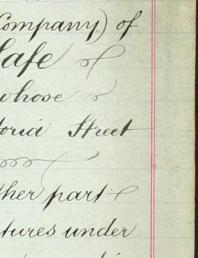 Company) of
Safe of
whose
toria Street
ther part
tures under